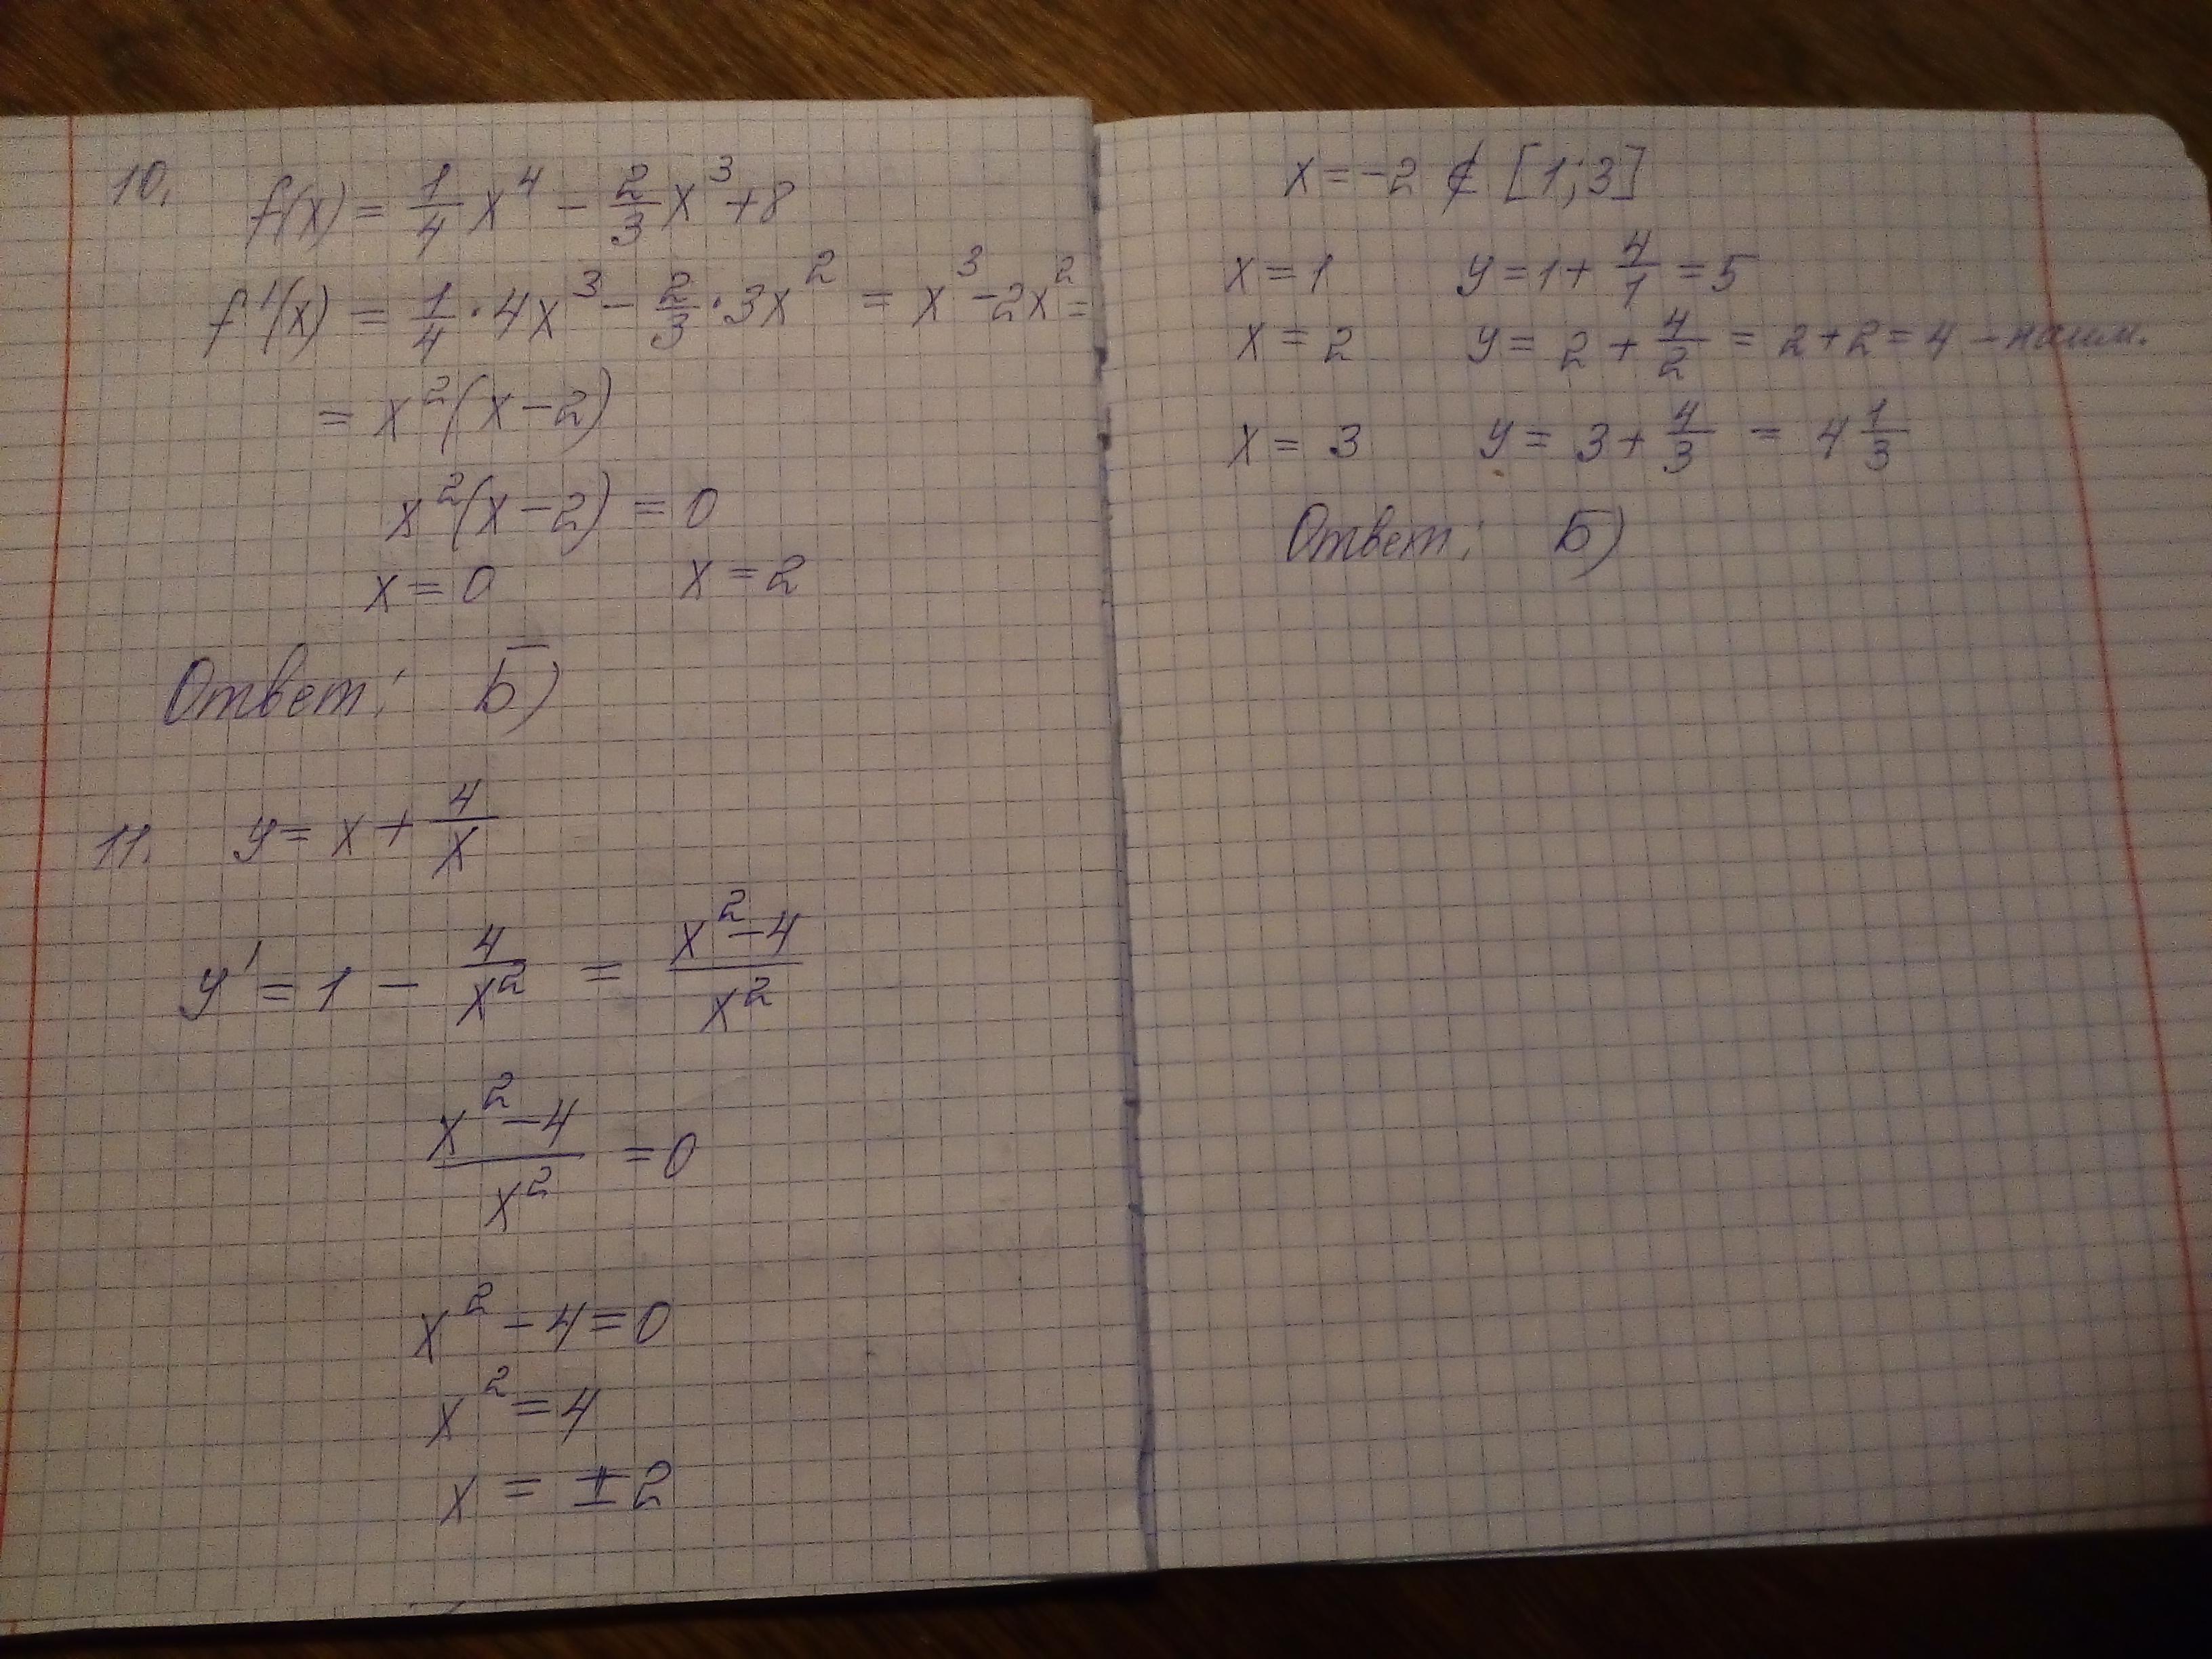 10. f(x) = 1/4 x^4 - 2/3 x^3 + 8
f'(x) = 1/4 · 4x^3 - 2/3 · 3x^2 = x^3 - 2x^2 =
= x^2(x-2)
x^2(x-2) = 0
x = 0 x = 2
Ответ: Б)
11. y = x + 4/x
y' = 1 - 4/x^2 = (x^2-4)/x^2
(x^2-4)/x^2 = 0
x^2 - 4 = 0
x^2 = 4
x = ±2
x = -2 ∉ [1; 3]
x = 1 y = 1 + 4/1 = 5
x = 2 y = 2 + 4/2 = 2 + 2 = 4 - наим.
x = 3 y = 3 + 4/3 = 4 1/3
Ответ: Б)